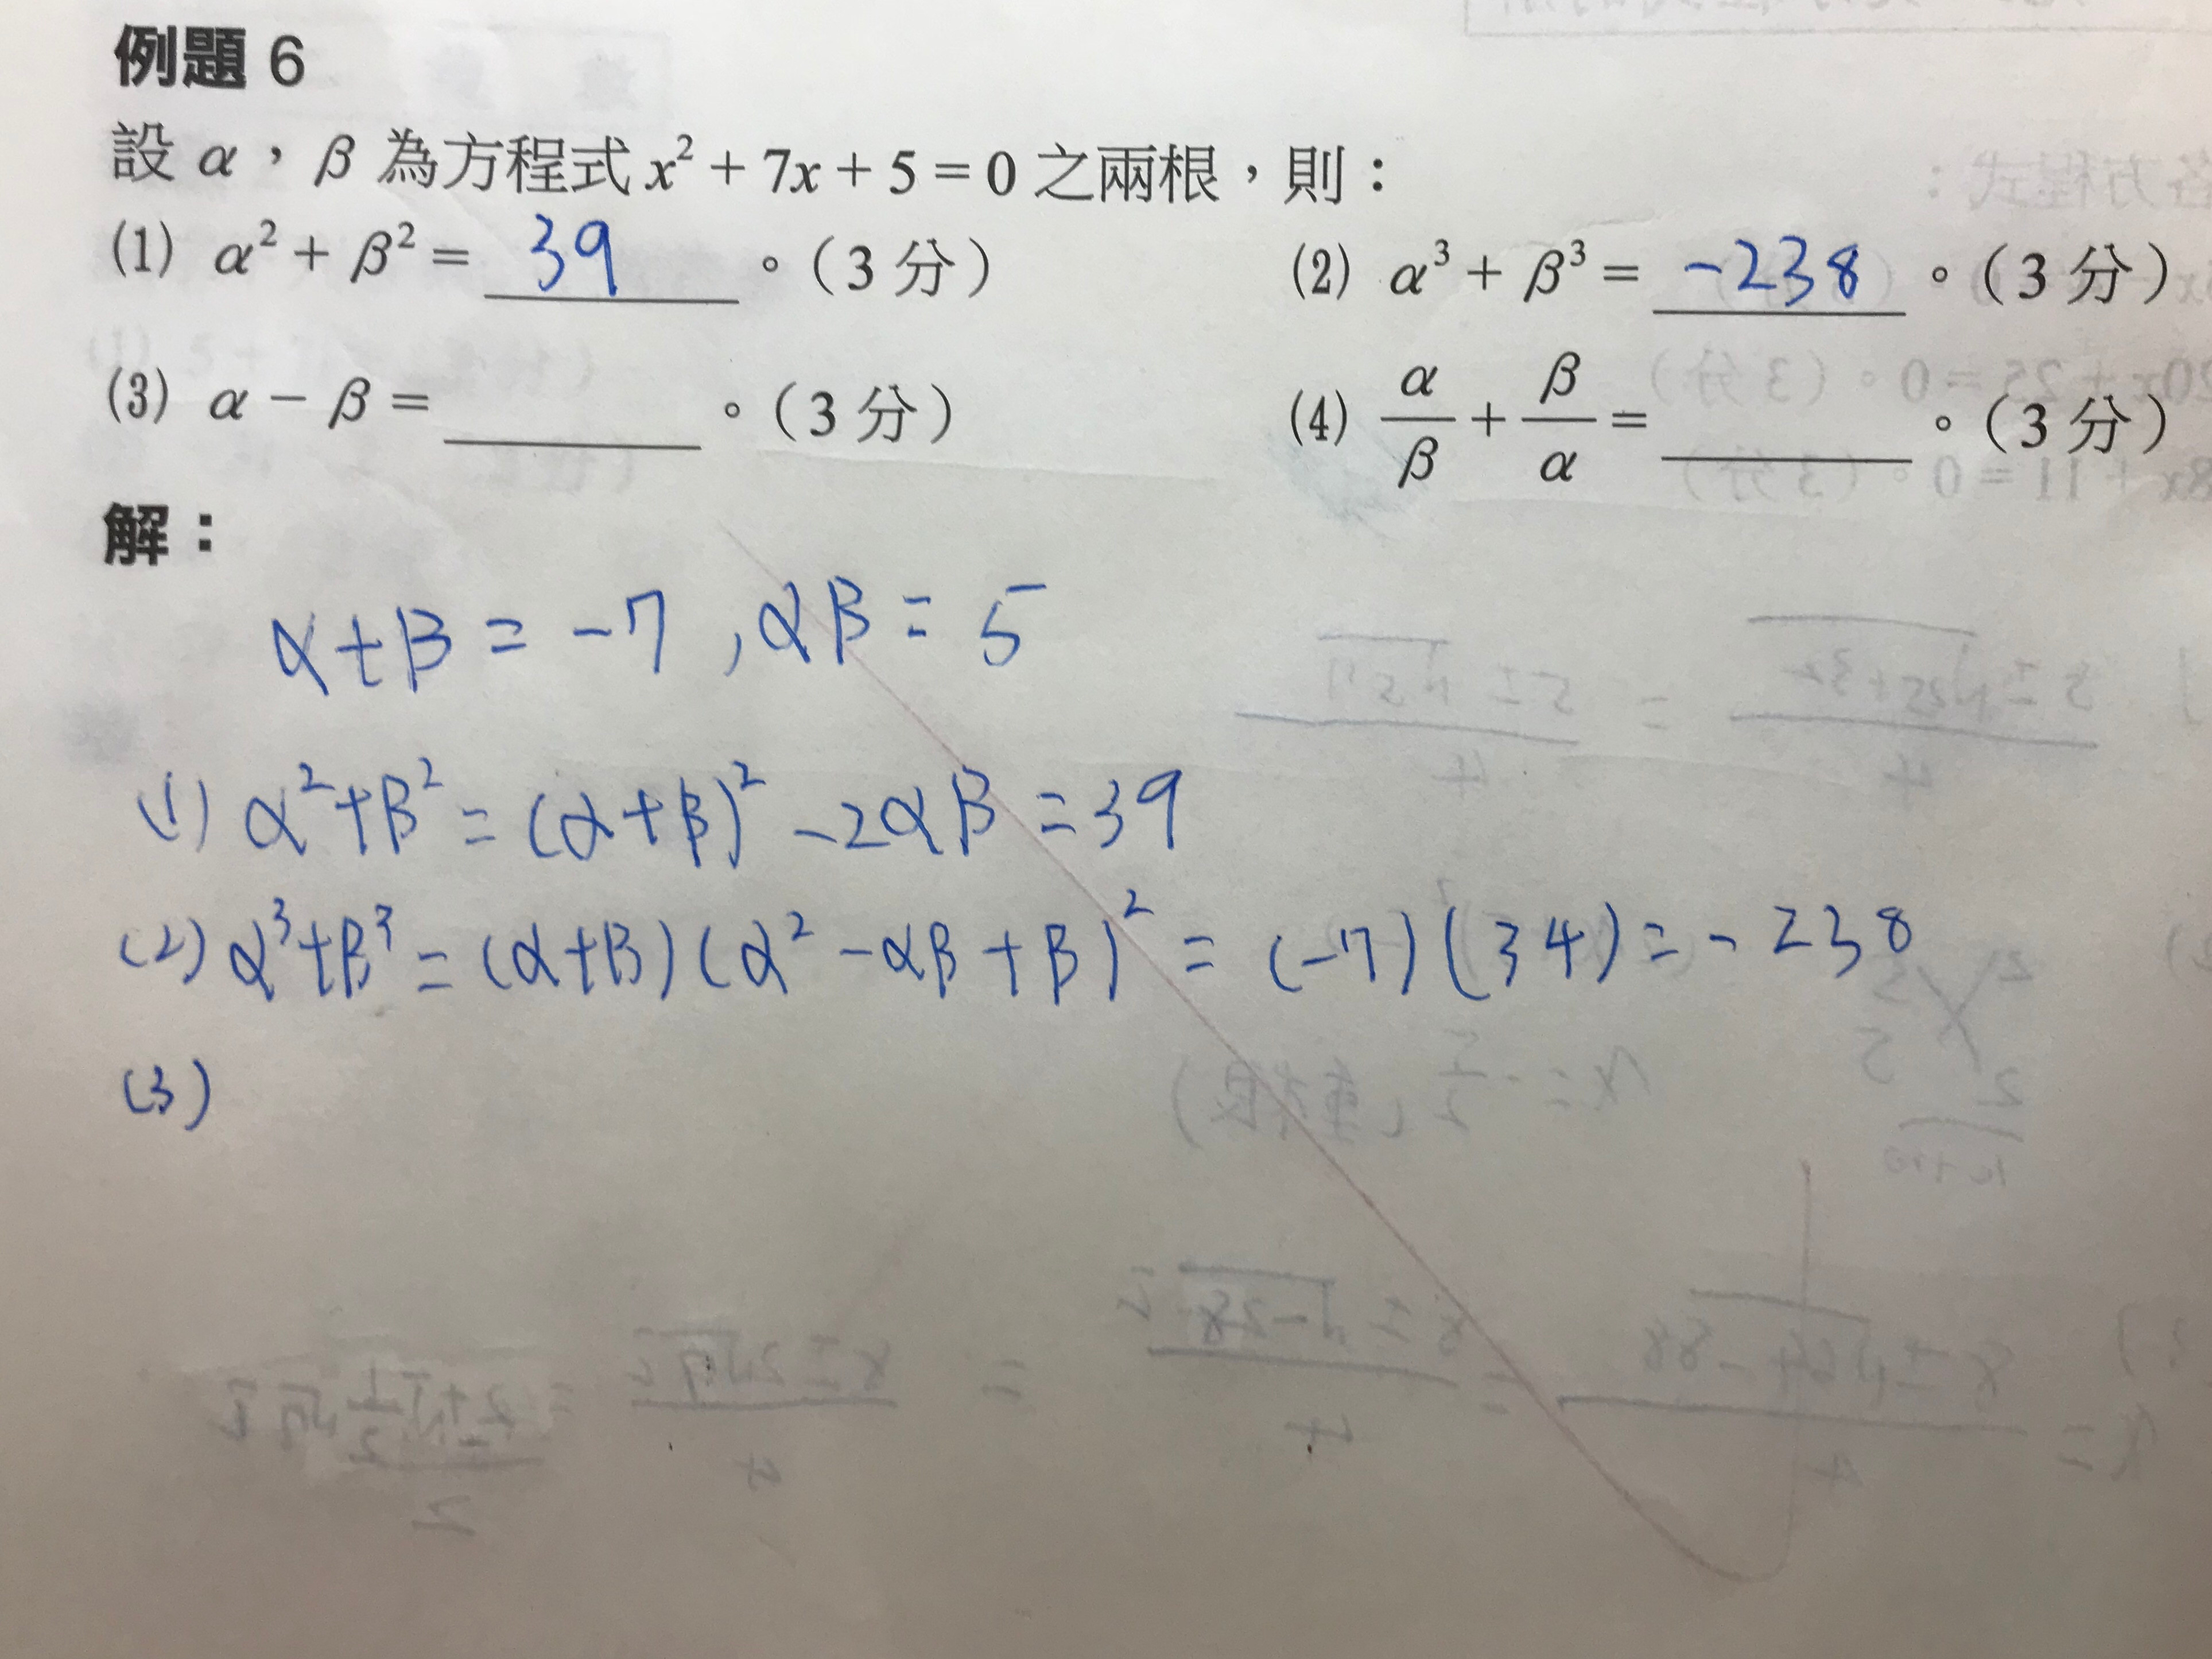 例題 6
設 α，β 為方程式 x² + 7x + 5 = 0 之兩根，則：
(1) α² + β² = 39 。（3 分）
(2) α³ + β³ = -238 。（3 分）
(3) α − β = ______ 。（3 分）
(4) α/β + β/α = ______ 。（3 分）
解：
α+β = -7 , αβ = 5
(1) α²+β² = (α+β)² -2αβ = 39
(2) α³+β³ = (α+β)(α² -αβ +β)² = (-7)(34) = -238
(3)